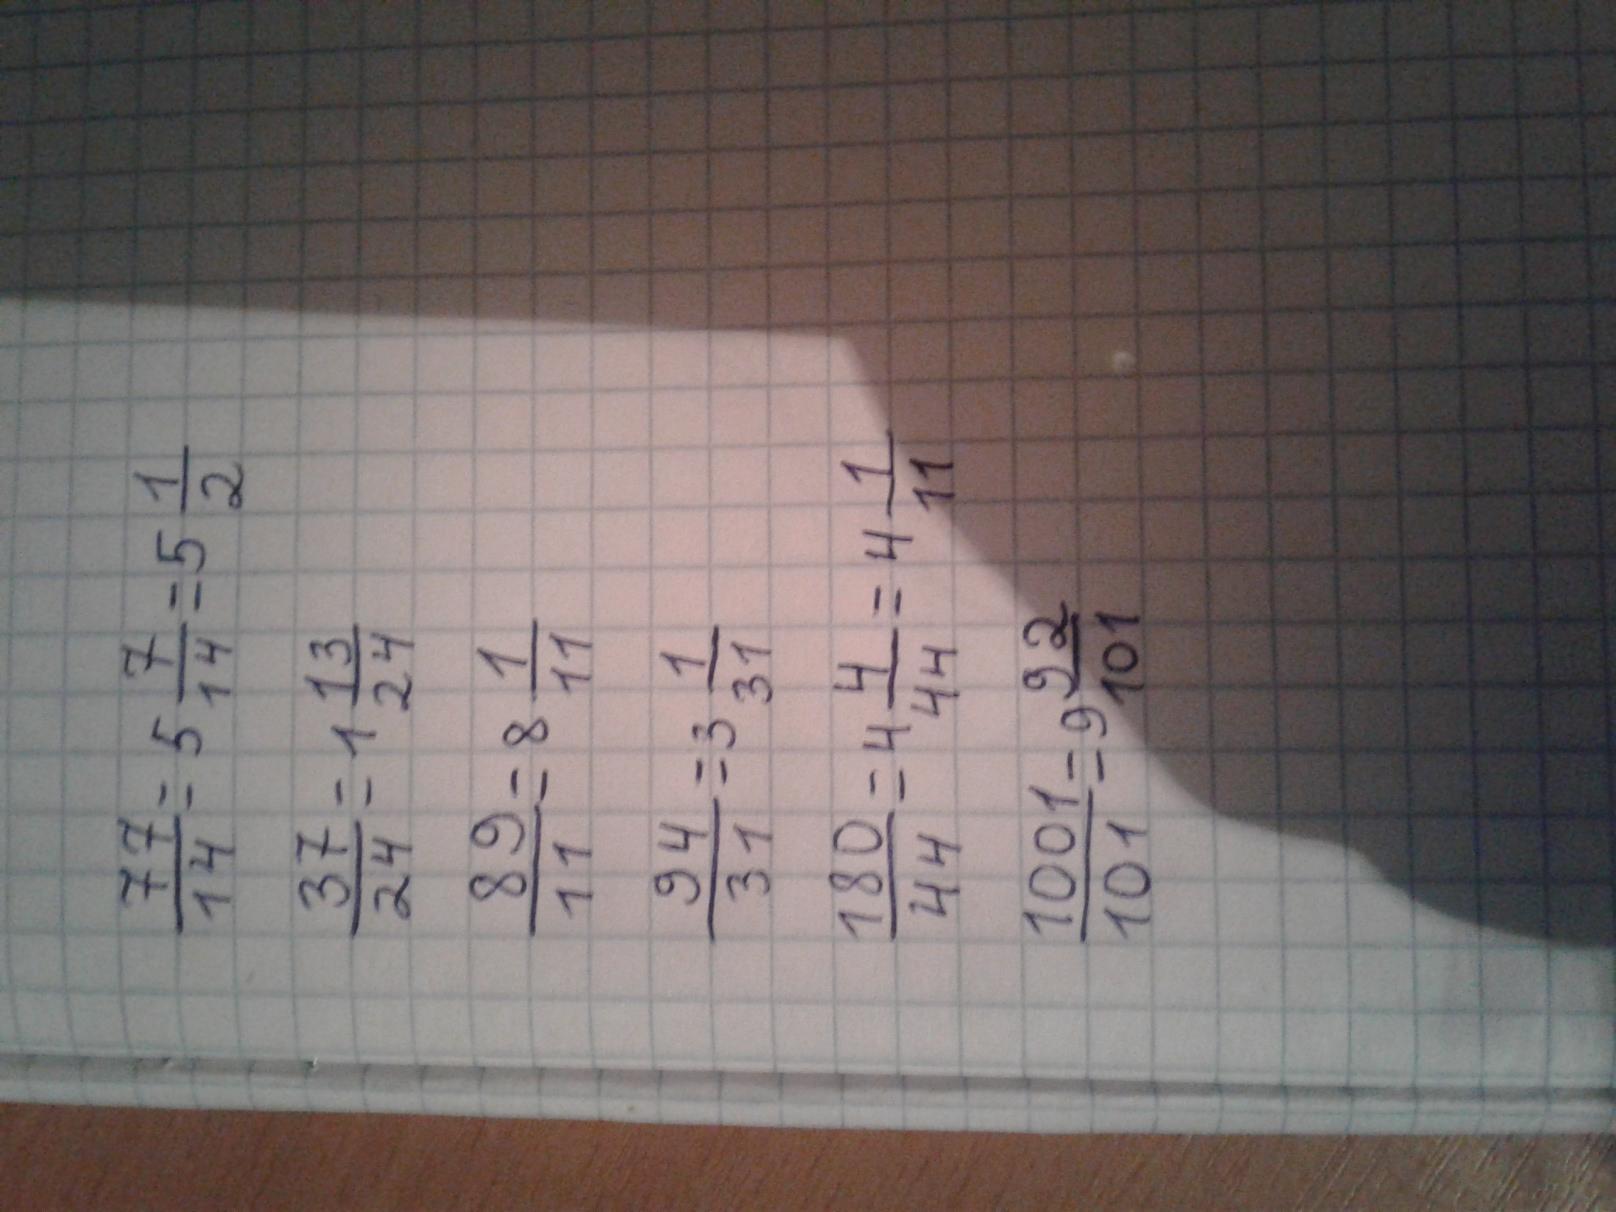 77/14 = 5 7/14 = 5 1/2
37/24 = 1 13/24
89/11 = 8 1/11
94/31 = 3 1/31
180/44 = 4 4/44 = 4 1/11
1001/101 = 9 92/101